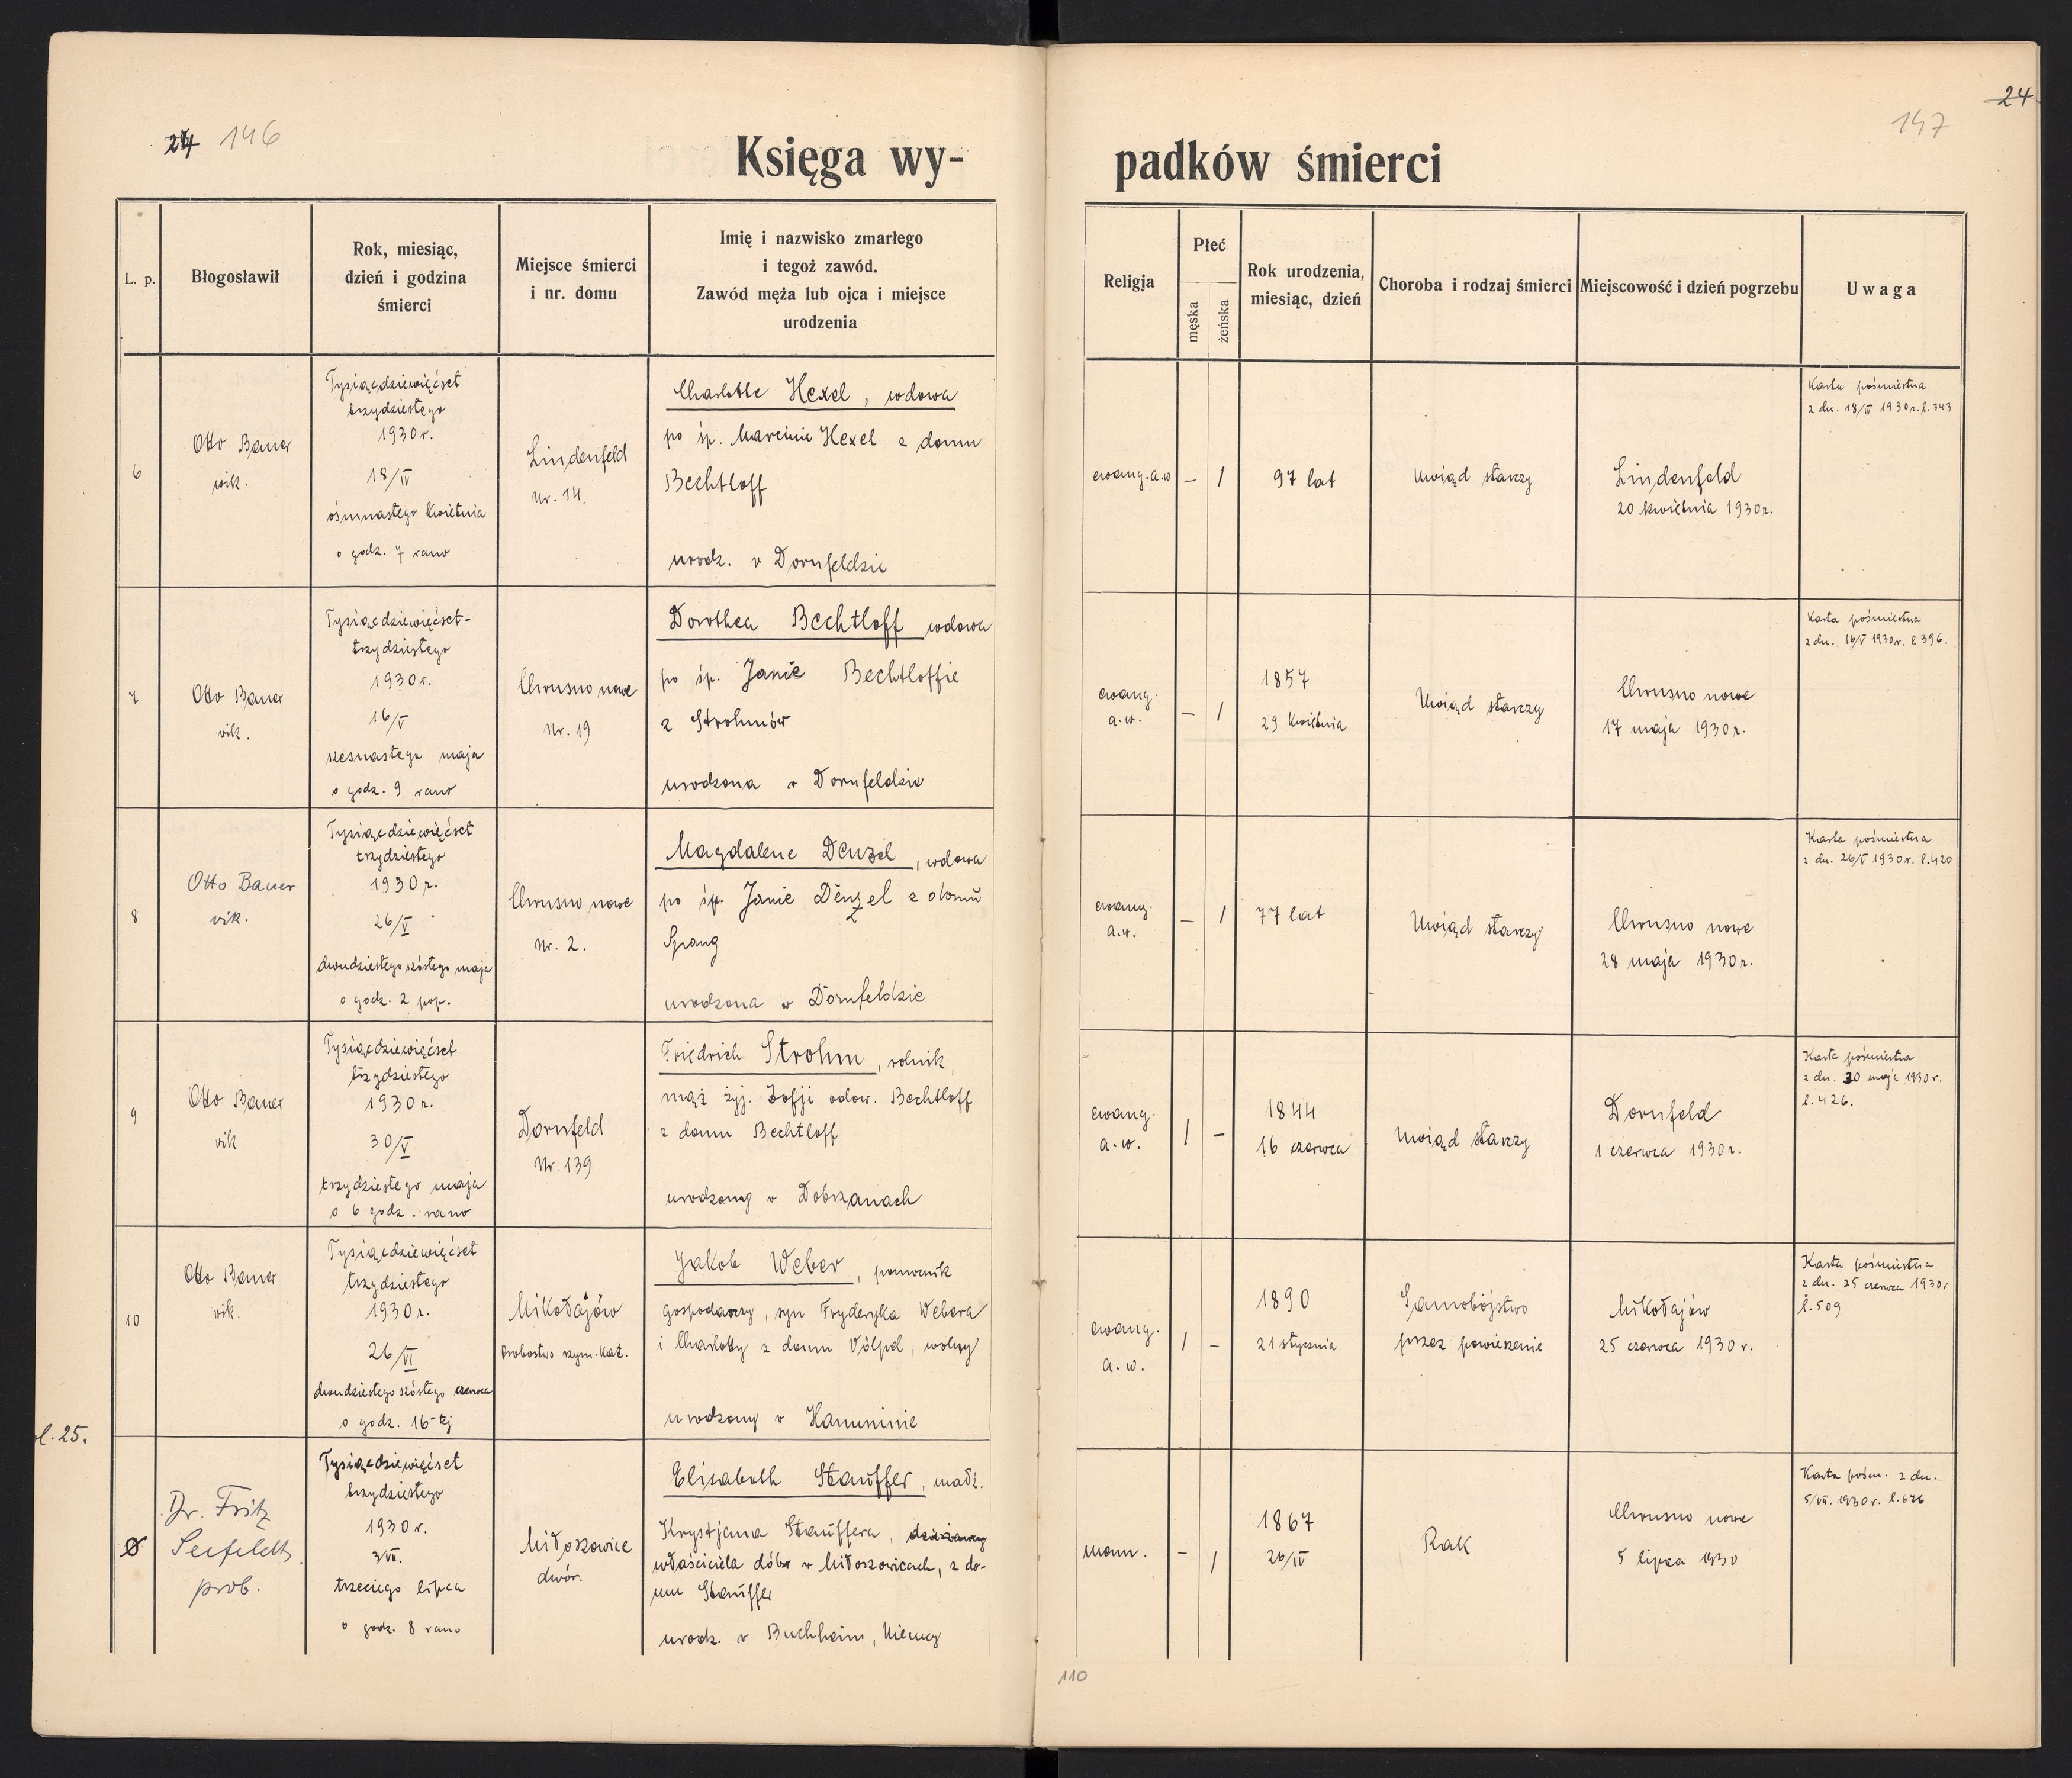 24 146
Księga wy-
L. p.
Błogosławił
Rok, miesiąc,
dzień i godzina
śmierci
Miejsce śmierci
i nr. domu
Imię i nazwisko zmarłego
i tegoż zawód.
Zawód męża lub ojca i miejsce
urodzenia
6
Otto Bauer
wik.
Tysiącdziewięćset
trzydziestego
1930 r.
18/IV
ośmnastego kwietnia
o godz. 7 rano
Lindenfeld
Nr. 14.
Charlotte Hexel, wdowa
po śp. Marcinie Hexel z domu
Bechtloff
urodz. w Dornfeldzie
7
Otto Bauer
wik.
Tysiącdziewięćset-
trzydziestego
1930 r.
16/V
szesnastego maja
o godz. 9 rano
Chrusno nowe
Nr. 19
Dorothea Bechtloff wdowa
po śp. Janie Bechtloffie
z Strohmów
urodzona w Dornfeldzie
8
Otto Bauer
wik.
Tysiącdziewięćset
trzydziestego
1930 r.
26/V
dwudziestego szóstego maja
o godz. 2 pop.
Chrusno nowe
Nr. 2.
Magdalene Denzel, wdowa
po śp. Janie Denzel z domu
Spang
urodzona w Dornfeldzie
9
Otto Bauer
wik
Tysiącdziewięćset
trzydziestego
1930 r.
30/V
trzydziestego maja
o 6 godz. rano
Dornfeld
Nr. 139
Friedrich Strohm, rolnik,
mąż żyj. Zofji odow. Bechtloff
z domu Bechtloff
urodzony w Dobrzanach
10
Otto Bauer
wik.
Tysiącdziewięćset
trzydziestego
1930 r.
26/VI
dwudziestego szóstego czerwca
o godz. 16-tej
Mikołajów
Probostwo rzym. kat.
Jakob Weber, pomocnik
gospodarczy, syn Fryderyka Webera
i Charloty z domu Völpel, wolny
urodzony w Hanuninie
l. 25.
Dr. Fritz
Seefeldt
prob.
Tysiącdziewięćset
trzydziestego
1930 r.
3/VII.
trzeciego lipca
o godz. 8 rano
Miłoszowice
dwór.
Elisabeth Stauffer, małż.
Krystjana Stauffera, dzierżawcy
właściciela dóbr w Miłoszowicach, z do-
mu Stauffer
urodz. w Buchheim, Niemcy
24
147
padków śmierci
Religja
Płeć
męska
żeńska
Rok urodzenia,
miesiąc, dzień
Choroba i rodzaj śmierci
Miejscowość i dzień pogrzebu
Uwaga
ewang. a.w
–
1
97 lat
Uwiąd starzy
Lindenfeld
20 kwietnia 1930 r.
Karta pośmiertna
z dn. 18/IV 1930 r. l. 343
ewang.
a. w.
–
1
1857
29 kwietnia
Uwiąd starzy
Chrusno nowe
17 maja 1930 r.
Karta pośmiertna
z dn. 16/V 1930 r. l 396.
ewang.
a. w.
–
1
77 lat
Uwiąd starzy
Chrusno nowe
28 maja 1930 r.
Karta pośmiertna
z dn. 26/V 1930 r. l. 420
ewang.
a. w.
1
–
1844
16 czerwca
Uwiąd starzy
Dornfeld
1 czerwca 1930 r.
Karta pośmiertna
z dn. 30 maja 1930 r.
l. 426.
ewang.
a. w.
1
–
1890
21 stycznia
Samobójstwo
przez powieszenie
Mikołajów
25 czerwca 1930 r.
Karta pośmiertna
z dn. 25 czerwca 1930 r
l. 509
menn.
–
1
1867
26/IV
Rak
Chrusno nowe
5 lipca 1930
Karta pośm. z dn.
5/VII. 1930 r.
110